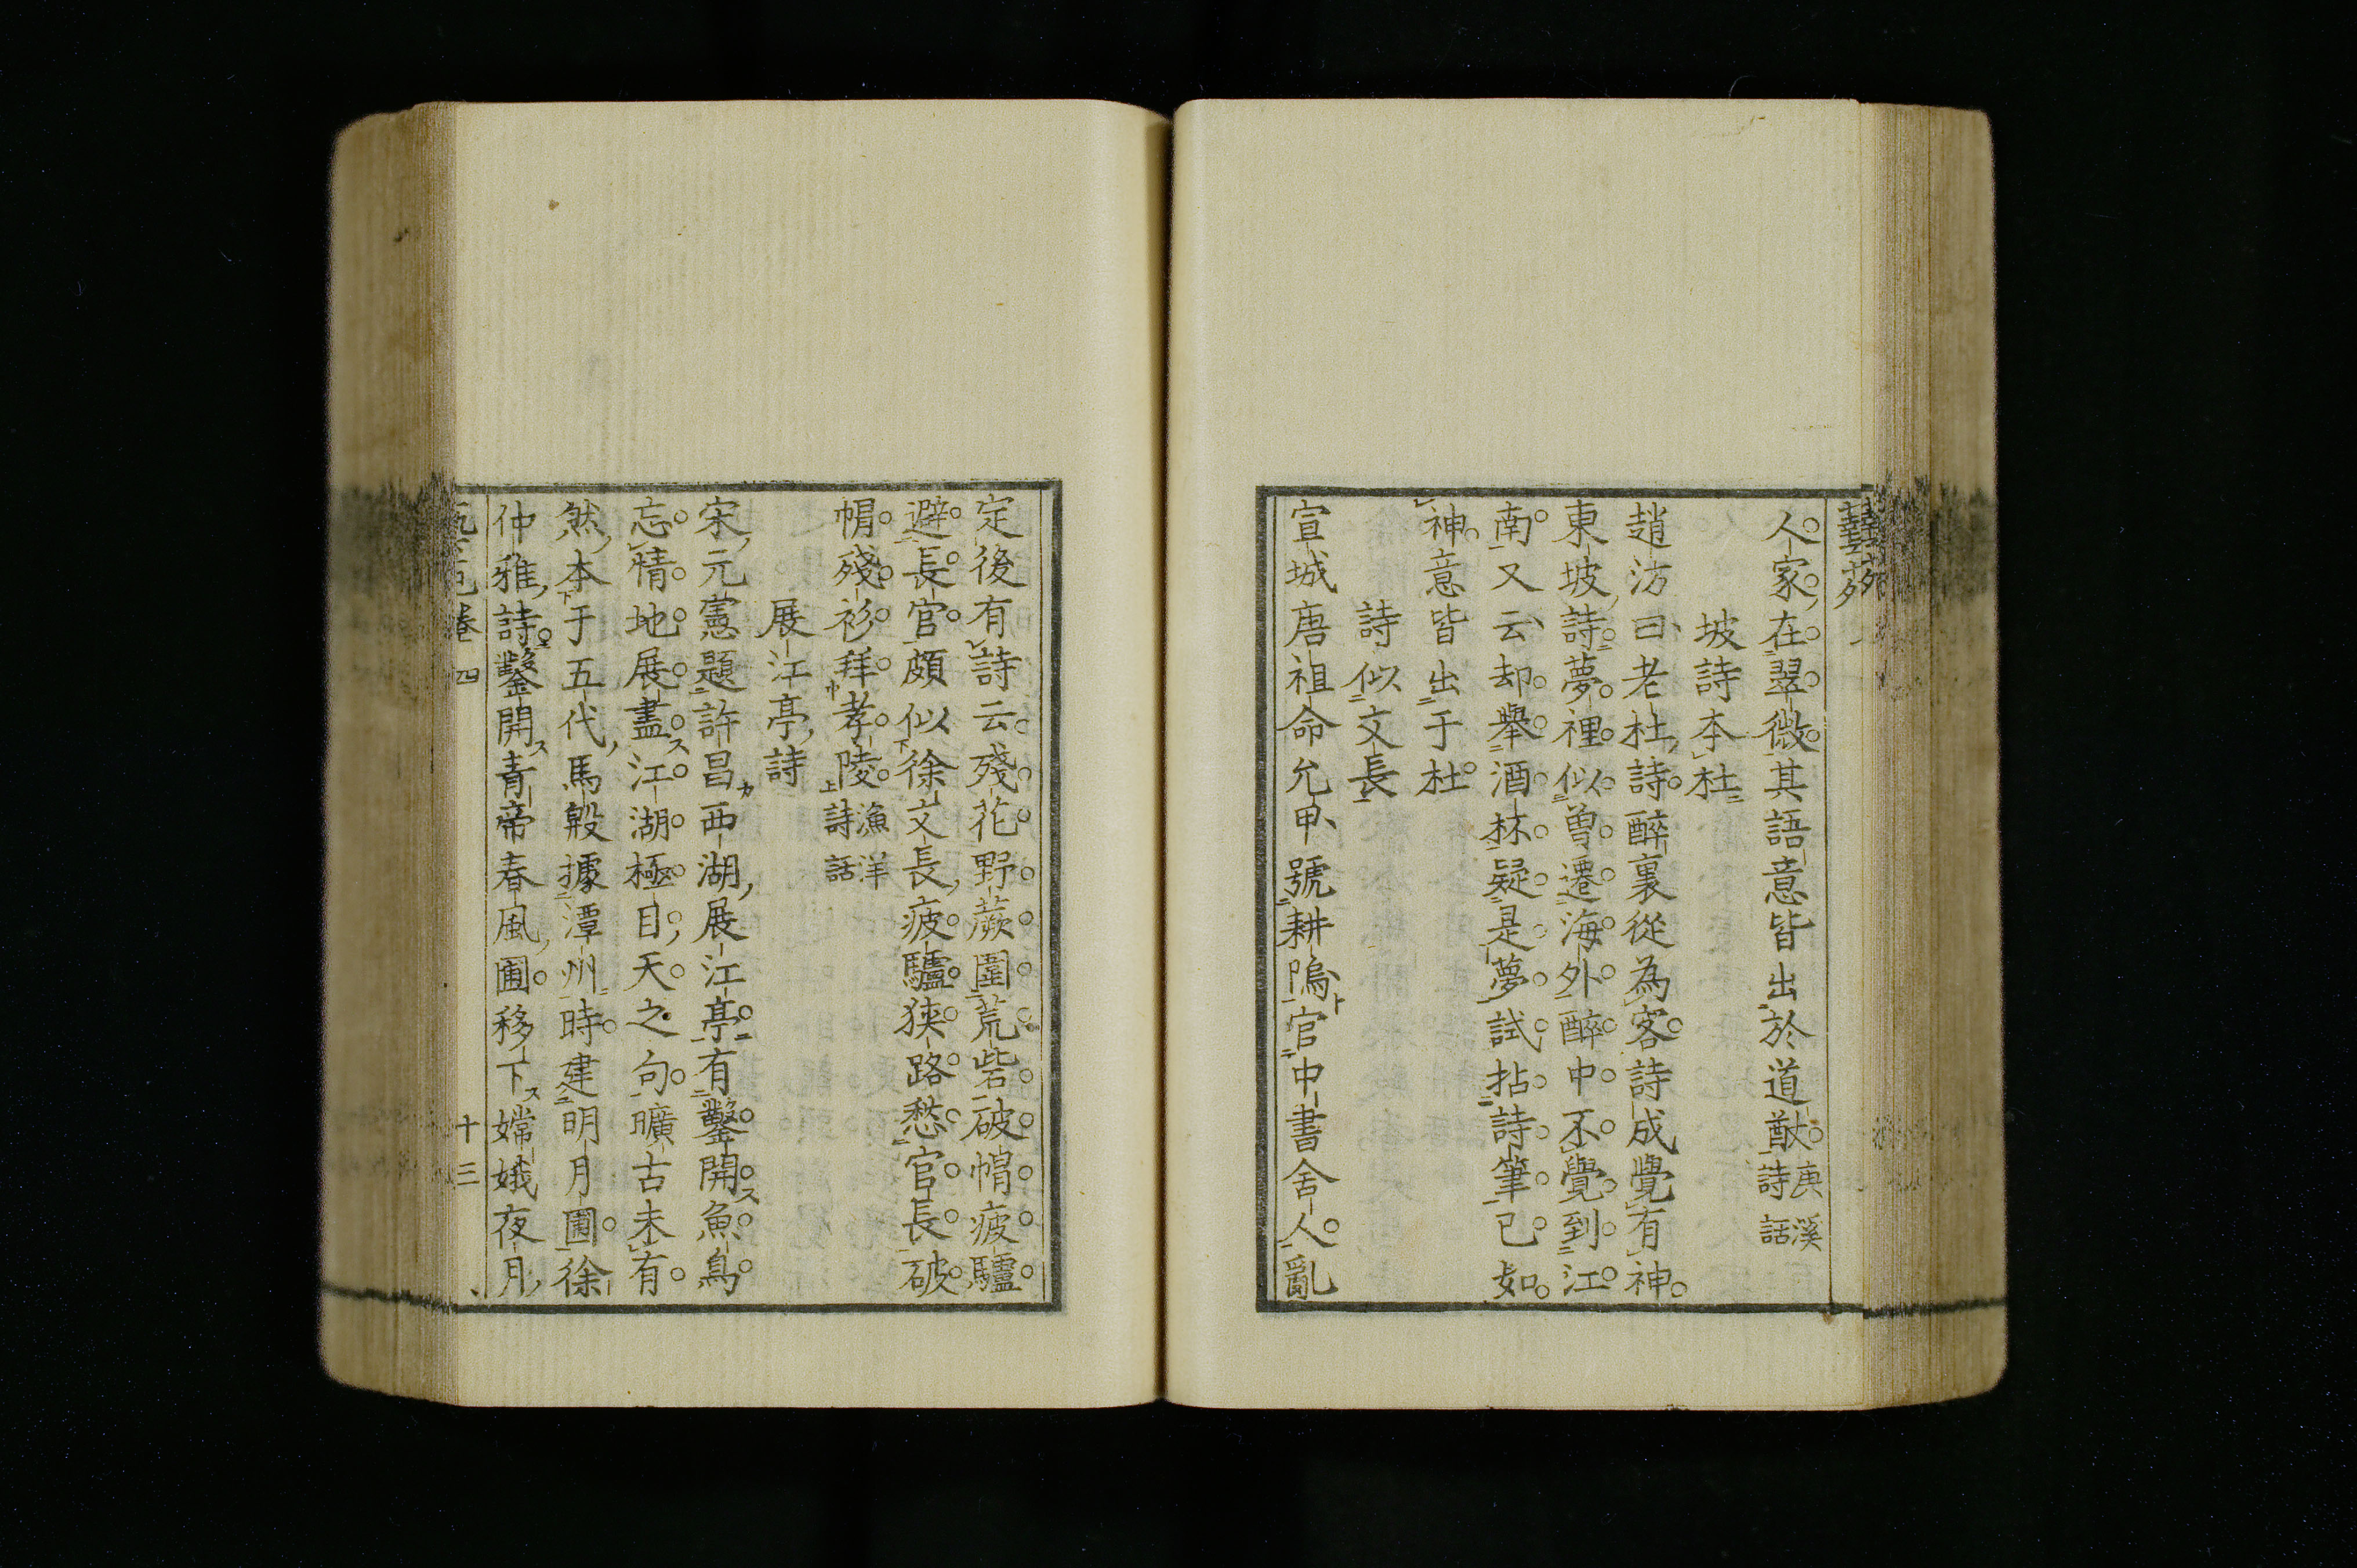 藝苑
人家在翠微其語意皆出於道猷庚溪詩話
坡詩本杜
趙汸曰老杜詩醉裏從為客詩成覺有神
東坡詩夢裡似曽遷海外醉中不覺到江
南又云却舉酒杯疑是夢試拈詩筆已如
神意皆出于杜
詩似文長
宣城唐祖命允甲號耕塢官中書舍人亂
定後有詩云殘花野蕨圍荒砦破帽疲驢
避長官頗似徐文長疲驢狹路愁官長破
帽殘衫拜孝陵漁洋詩話
展江亭詩
宋元憲題許昌西湖展江亭有鑿開魚鳥
忘情地展盡江湖極目天之句曠古未有
然本于五代馬殷據潭州時建明月圃徐
仲雅詩鑿開青帝春風圃移下嫦娥夜月
卷四
十三